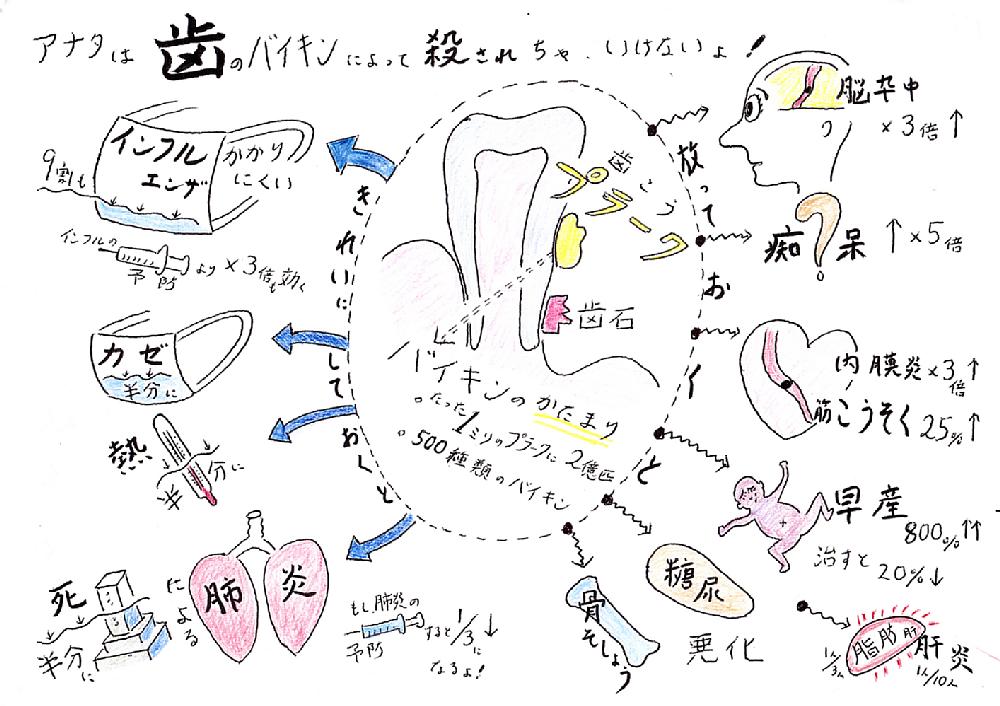 アナタは歯のバイキンによって殺されちゃ、いけないよ!
インフル
エンザ
かかり
にくい
9割も
インフルの
予防
より×3倍も効く
カゼ
半分に
熱
半分に
死
半分に
による
肺炎
もし肺炎の
予防
すると1/3↓
なるよ!
きれいにしておくと
歯こう
プラーク
歯石
バイキンのかたまり
。たった1ミリのプラークに2億匹
。500種類のバイキン
放っておくと
脳卒中
×3倍↑
痴呆
?
↑×5倍
内膜炎×3倍↑
筋こうそく25%↑
早産
800%↑↑
治すと20%↓
糖尿
悪化
骨そしょう
脂肪肝
肝炎
1人/3人
1人/10人